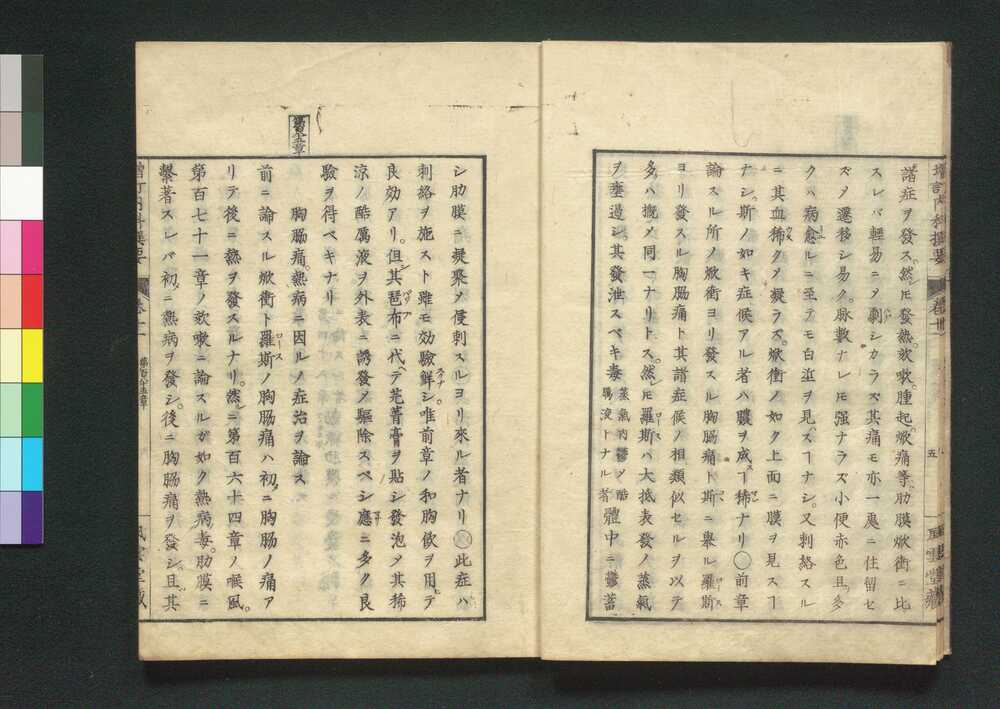 諸症ヲ發ス。然レ𪜈發熱。欬嗽。腫起。焮痛等。肋膜焮衝ニ比
スレバ輕易ニ乄劇シカラズ其痛モ亦一處ニ住留セ
ズ乄遷移シ易ク。脉數ナレ𪜈強ナラズ小便赤色且ツ多
クハ病愈ルニ至テモ白滓ヲ見ズヿナシ。又刺絡スル
ニ其血稀クメ凝ラズ。焮衝ノ如ク上面ニ膜ヲ見スヿ
ナシ。斯ノ如キ症候アル者ハ膿ヲ成スヿ稀ナリ〇前章
論スル所ノ焮衝ヨリ發スル胸膓痛ト斯ニ舉ル羅斯
ヨリ發スル胸膓痛ト其諸症候ノ相類似セルヲ以テ
多ハ概乄同一ナリトス。然レ𪜈羅斯ハ大抵表發ノ蒸氣
ヲ壅遏シ其發泄スベキ毒 蒸氣內鬱乄酷厲液トナル者 體中ニ鬱蓄
增訂內科撰要
五
シ肋膜ニ凝聚乄侵刺スルヨリ來ル者ナリ〇此症ハ
刺絡ヲ施スト雖モ効驗鮮シ。唯前章ノ和胸飲ヲ用テ
良効アリ。但其琶布ニ代ヘテ芫菁膏ヲ貼シ發泡乄其稀
涼ノ酷厲液ヲ外表ニ誘發乄驅除スベシ應ニ多ク良
驗ヲ得ベキナリ
第百八十五章
胸膓痛。熱病ニ因ルノ症治ヲ論ス
前ニ論スル焮衝ト羅斯ノ胸膓痛ハ初メニ胸膓ノ痛ア
リテ後ニ熱ヲ發スルナリ。然ルニ第百六十四章ノ喉風。
第百七十一章ノ欬嗽ニ論スルガ如ク熱病毒。肋膜ニ
繫著スレバ初メニ熱病ヲ發シ。後ニ胸膓痛ヲ發シ。且其
增訂內科撰要
第百八十五章